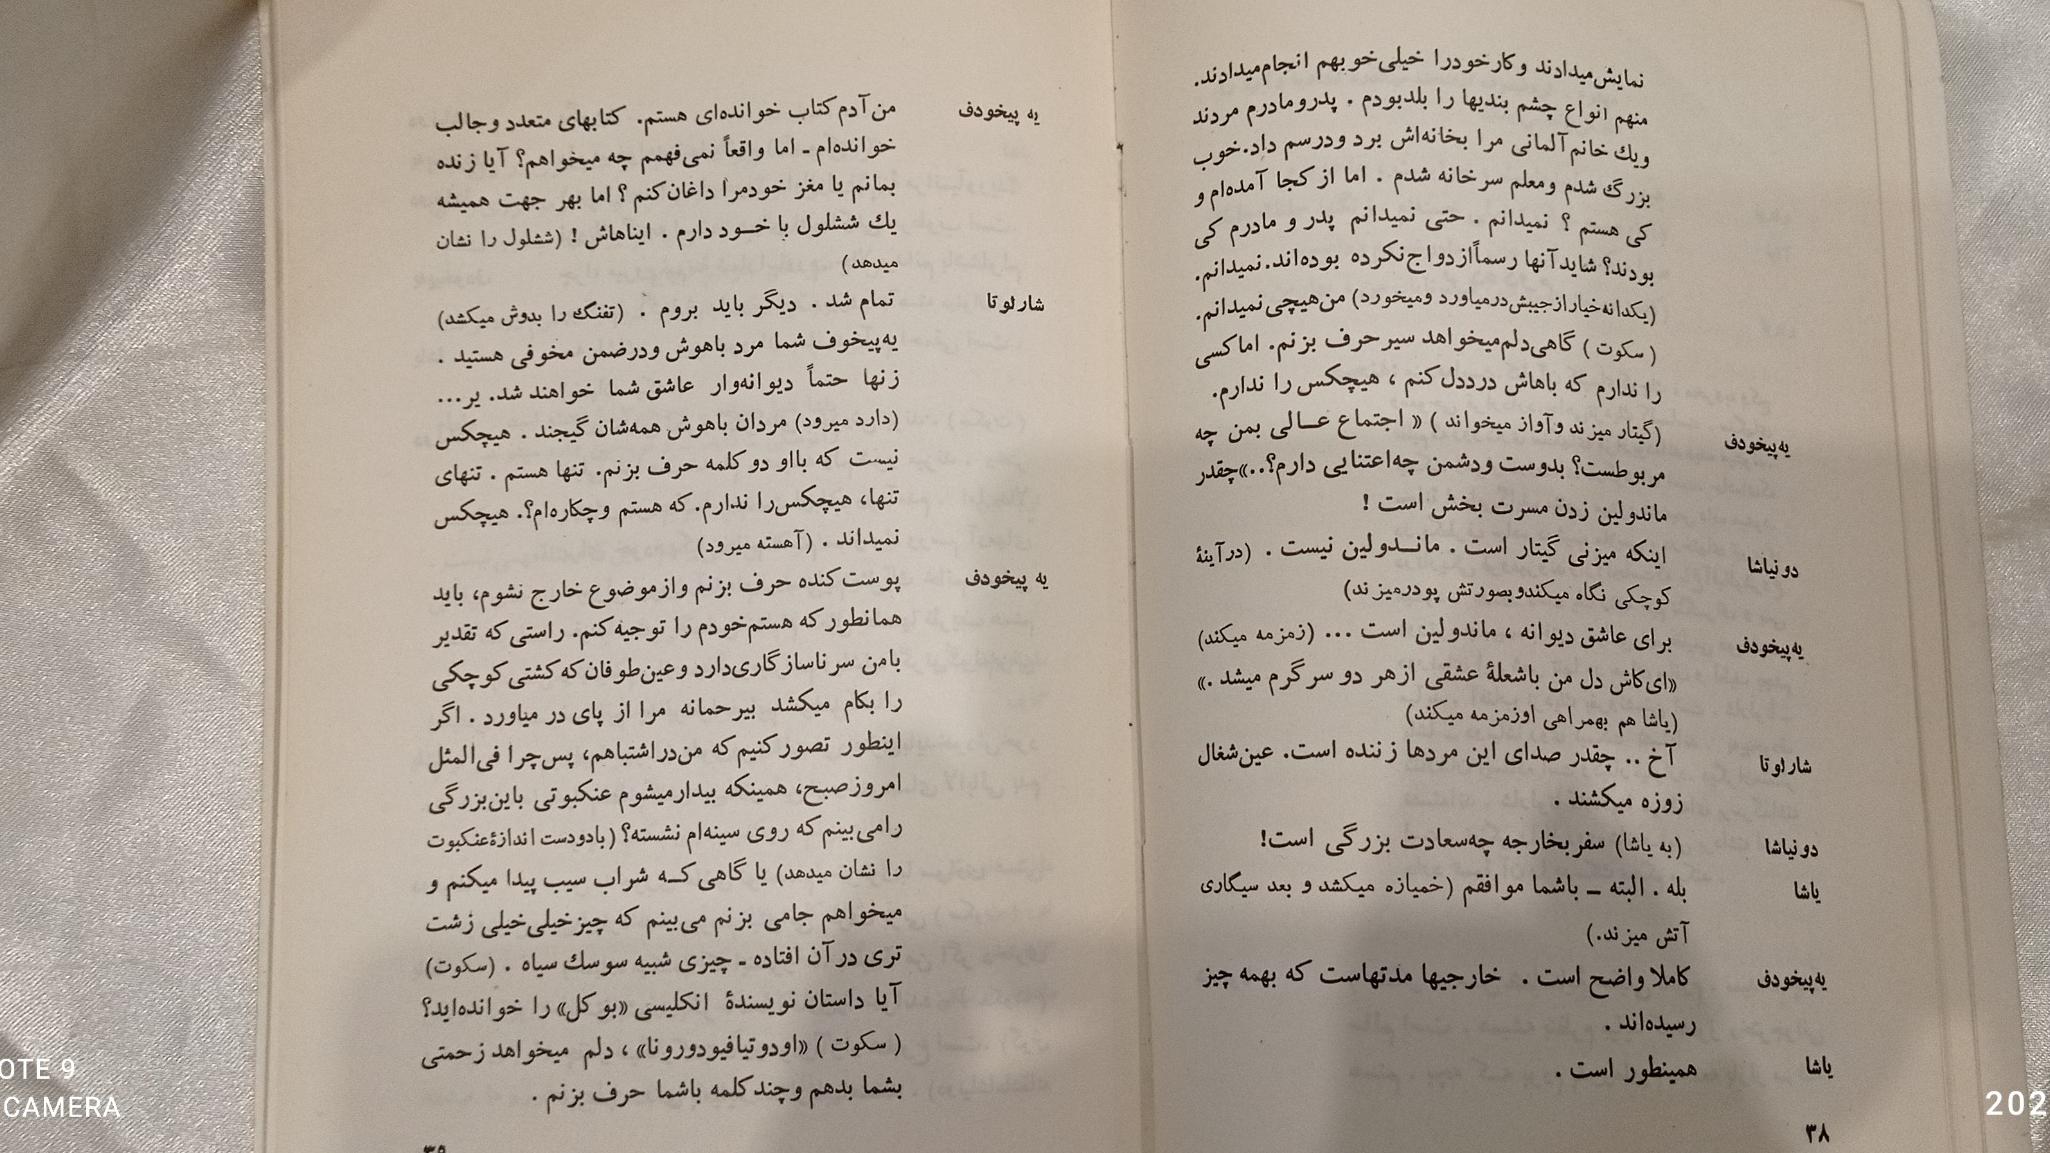 نمایش‌میدادند و کار خود را خیلی خوبهم انجام‌میدادند.
منهم انواع چشم بندیها را بلدبودم . پدرومادرم مردند
ویك خانم آلمانی مرا بخانه‌اش برد ودرسم داد.خوب
بزرگ شدم ومعلم سرخانه شدم . اما از کجا آمده‌ام و
کی هستم ؟ نمیدانم . حتی نمیدانم پدر و مادرم کی
بودند؟ شایدآنها رسماًازدواج نکرده بوده‌اند.نمیدانم.
(یکدانه‌خیارازجیبش‌درمیاورد ومیخورد) من‌هیچی نمیدانم.
( سکوت ) گاهی‌دلم‌میخواهد سیرحرف بزنم. اماکسی
را ندارم که باهاش درددل کنم ، هیچکس را ندارم.
یه‌پیخودف (گیتار میزند وآواز میخواند ) « اجتماع عـالی بمن چه
مربوطست؟ بدوست ودشمن چه‌اعتنایی دارم؟..»چقدر
ماندولین زدن مسرت بخش است !
دونیاشا اینکه میزنی گیتار است . مانـدولین نیست . (درآینهٔ
کوچکی نگاه میکندوبصورتش پودرمیزند)
یه‌پیخودف برای عاشق دیوانه ، ماندولین است ... (زمزمه میکند)
«ای‌کاش دل من باشعلهٔ عشقی ازهر دو سرگرم میشد .»
(یاشا هم بهمراهی اوزمزمه میکند)
شارلوتا آخ .. چقدر صدای این مردها زننده است. عین‌شغال
زوزه میکشند .
دونیاشا (به یاشا) سفربخارجه چه‌سعادت بزرگی است!
یاشا بله . البته ـ باشما موافقم (خمیازه میکشد و بعد سیگاری
آتش میزند.)
یه‌پیخودف کاملا واضح است . خارجیها مدتهاست که بهمه چیز
رسیده‌اند .
یاشا همینطور است .
۳۸
یه پیخودف من آدم کتاب خوانده‌ای هستم. کتابهای متعدد وجالب
خوانده‌ام ـ اما واقعاً نمی‌فهمم چه میخواهم؟ آیا زنده
بمانم یا مغز خودمرا داغان‌کنم ؟ اما بهر جهت همیشه
یك ششلول با خـود دارم . ایناهاش ! (ششلول را نشان
میدهد)
شارلوتا تمام شد . دیگر باید بروم . (تفنگ را بدوش میکشد)
یه‌پیخوف شما مرد باهوش ودرضمن مخوفی هستید .
زنها حتماً دیوانه‌وار عاشق شما خواهند شد. یر...
(دارد میرود) مردان باهوش همه‌شان گیجند . هیچکس
نیست که بااو دو کلمه حرف بزنم. تنها هستم . تنهای
تنها، هیچکس‌را ندارم. که هستم وچکاره‌ام؟. هیچکس
نمیداند . (آهسته میرود)
یه پیخودف پوست‌کنده حرف بزنم وازموضوع خارج نشوم، باید
همانطور که هستم‌خودم را توجیه‌کنم. راستی که تقدیر
بامن سرناسازگاری‌دارد وعین‌طوفان که‌کشتی کوچکی
را بکام میکشد بیرحمانه مرا از پای در میاورد . اگر
اینطور تصور کنیم که من‌دراشتباهم، پس‌چرا فی‌المثل
امروزصبح، همینکه بیدارمیشوم عنکبوتی باین‌بزرگی
رامی‌بینم که روی سینه‌ام نشسته؟ (بادودست اندازهٔ‌عنکبوت
را نشان میدهد) یا گاهی کـه شراب سیب پیدا میکنم و
میخواهم جامی بزنم می‌بینم که چیزخیلی‌خیلی زشت
تری در آن افتاده ـ چیزی شبیه سوسك سیاه . (سکوت)
آیا داستان نویسندهٔ انکلیسی «بوکل» را خوانده‌اید؟
( سکوت ) «اودوتیافیودورونا» ، دلم میخواهد زحمتی
بشما بدهم وچندکلمه باشما حرف بزنم .
۳۹
OTE 9
CAMERA
202